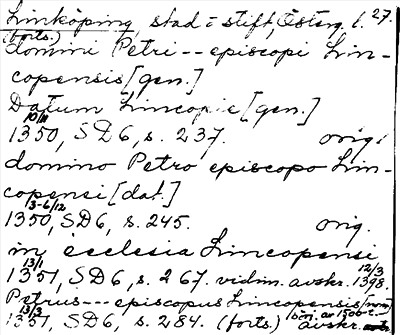 Linköping, stad o stift, Österg. l. 27.
(forts.)
domini Petri -- episcopi Lin-
copensis [gen.]
Datum Lincopie [gen.]
10/11
1350, SD6, s. 237. orig.
domino Petro episcopo Lin-
copensi [dat.]
3-6/12
1350, SD6, s. 245. orig.
in ecclesia Lincopensi
13/1 12/3
1351, SD6, s. 267. vidim. avskr. 1398.
Petrus --- episcopus Lincopensis [nom.]
13/3 av 1500-t.
1351, SD6, s. 284. (forts.) avskr.